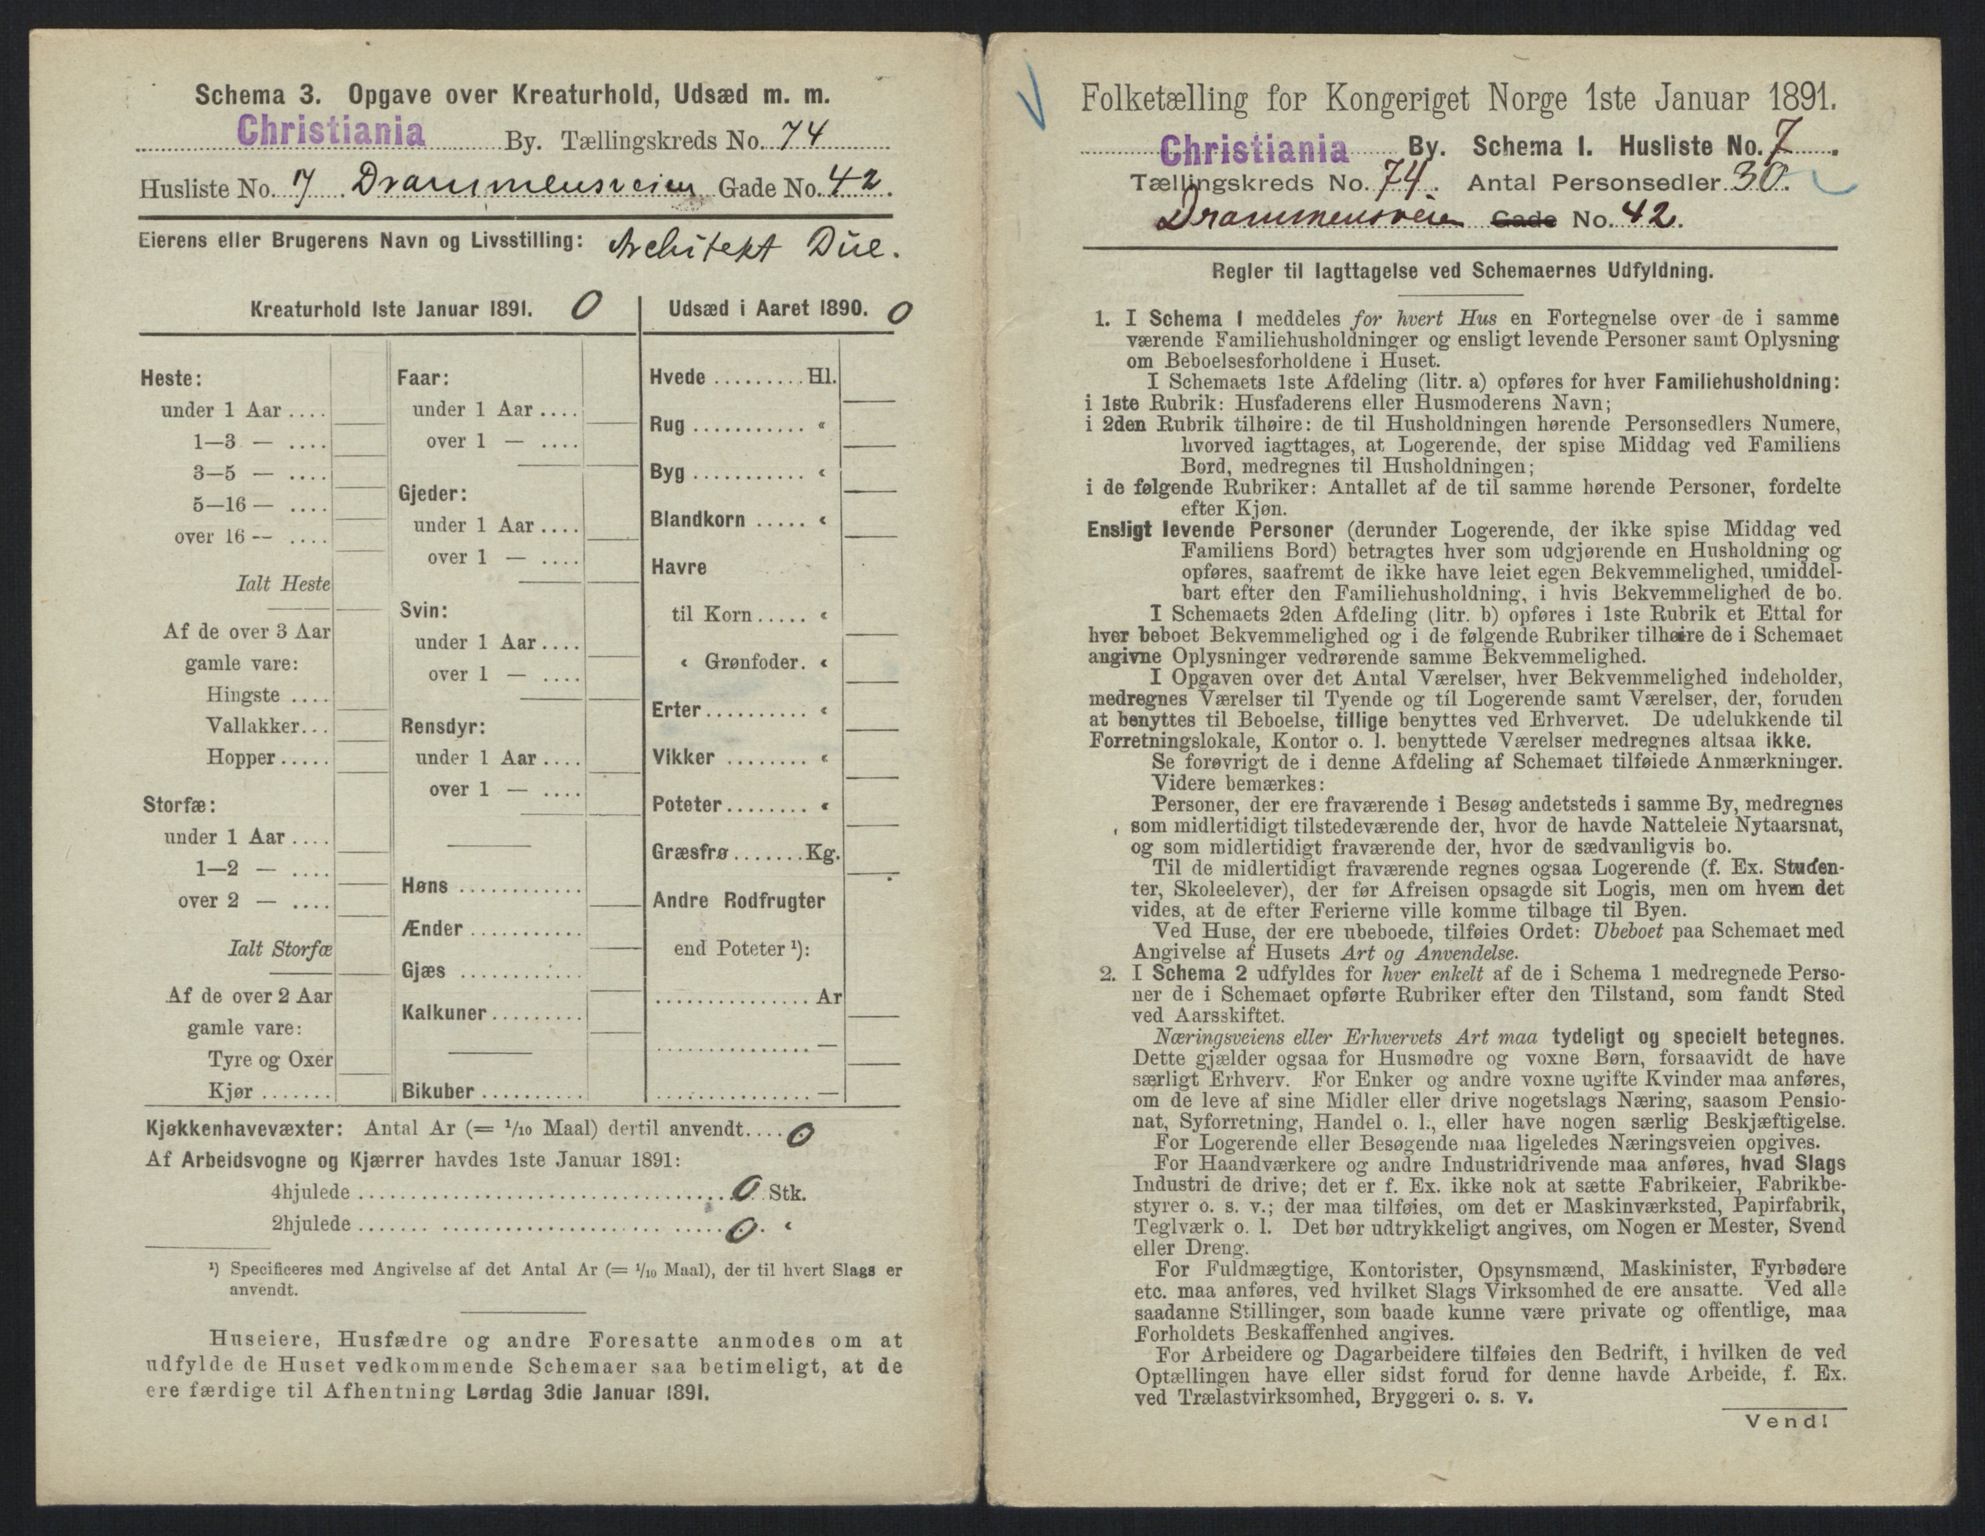 Schema 3. Opgave over Kreaturhold, Udsæd m. m.
Christiania By. Tællingskreds No. 74
Husliste No. 7 Drammensveien Gade No. 42.
Eierens eller Brugerens Navn og Livsstilling: Architekt Due.
Kreaturhold 1ste Januar 1891. 0
Heste:
under 1 Aar ....
1—3 — ....
3—5 — ....
5—16 — ....
over 16 — ....
Ialt Heste
Af de over 3 Aar
gamle vare:
Hingste ....
Vallakker...
Hopper.....
Storfæ:
under 1 Aar ....
1—2 — ....
over 2 — ....
Ialt Storfæ
Af de over 2 Aar
gamle vare:
Tyre og Oxer
Kjør .......
Faar:
under 1 Aar ....
over 1 — ....
Gjeder:
under 1 Aar ....
over 1 — ....
Svin:
under 1 Aar ....
over 1 — ....
Rensdyr:
under 1 Aar ....
over 1 — ....
Høns ............
Ænder ...........
Gjæs ............
Kalkuner.........
Bikuber ..........
Udsæd i Aaret 1890. 0
Hvede ......... Hl.
Rug ........... «
Byg ........... «
Blandkorn ..... «
Havre
til Korn ..... «
« Grønfoder. «
Erter.......... «
Vikker ........ «
Poteter........ «
Græsfrø....... Kg.
Andre Rodfrugter
end Poteter ¹):
............... Ar
............... —
............... —
Kjøkkenhavevæxter: Antal Ar (= 1/10 Maal) dertil anvendt.... 0
Af Arbeidsvogne og Kjærrer havdes 1ste Januar 1891:
4hjulede .................................... 0 Stk.
2hjulede .................................... 0. «
¹) Specificeres med Angivelse af det Antal Ar (= 1/10 Maal), der til hvert Slags er
anvendt.
Huseiere, Husfædre og andre Foresatte anmodes om at
udfylde de Huset vedkommende Schemaer saa betimeligt, at de
ere færdige til Afhentning Lørdag 3die Januar 1891.
Folketælling for Kongeriget Norge 1ste Januar 1891.
Christiania By. Schema 1. Husliste No. 7.
Tællingskreds No. 74. Antal Personsedler 30.
Drammensveien Gade No. 42.
Regler til Iagttagelse ved Schemaernes Udfyldning.
1. I Schema 1 meddeles for hvert Hus en Fortegnelse over de i samme
værende Familiehusholdninger og ensligt levende Personer samt Oplysning
om Beboelsesforholdene i Huset.
I Schemaets 1ste Afdeling (litr. a) opføres for hver Familiehusholdning:
i 1ste Rubrik: Husfaderens eller Husmoderens Navn;
i 2den Rubrik tilhøire: de til Husholdningen hørende Personsedlers Numere,
hvorved iagttages, at Logerende, der spise Middag ved Familiens
Bord, medregnes til Husholdningen;
i de følgende Rubriker: Antallet af de til samme hørende Personer, fordelte
efter Kjøn.
Ensligt levende Personer (derunder Logerende, der ikke spise Middag ved
Familiens Bord) betragtes hver som udgjørende en Husholdning og
opføres, saafremt de ikke have leiet egen Bekvemmelighed, umiddel-
bart efter den Familiehusholdning, i hvis Bekvemmelighed de bo.
I Schemaets 2den Afdeling (litr. b) opføres i 1ste Rubrik et Ettal for
hver beboet Bekvemmelighed og i de følgende Rubriker tilhøire de i Schemaet
angivne Oplysninger vedrørende samme Bekvemmelighed.
I Opgaven over det Antal Værelser, hver Bekvemmelighed indeholder,
medregnes Værelser til Tyende og til Logerende samt Værelser, der, foruden
at benyttes til Beboelse, tillige benyttes ved Erhvervet. De udelukkende til
Forretningslokale, Kontor o. l. benyttede Værelser medregnes altsaa ikke.
Se forøvrigt de i denne Afdeling af Schemaet tilføiede Anmærkninger.
Videre bemærkes:
Personer, der ere fraværende i Besøg andetsteds i samme By, medregnes
som midlertidigt tilstedeværende der, hvor de havde Natteleie Nytaarsnat,
og som midlertidigt fraværende der, hvor de sædvanligvis bo.
Til de midlertidigt fraværende regnes ogsaa Logerende (f. Ex. Studen-
ter, Skoleelever), der før Afreisen opsagde sit Logis, men om hvem det
vides, at de efter Ferierne ville komme tilbage til Byen.
Ved Huse, der ere ubeboede, tilføies Ordet: Ubeboet paa Schemaet med
Angivelse af Husets Art og Anvendelse.
2. I Schema 2 udfyldes for hver enkelt af de i Schema 1 medregnede Perso-
ner de i Schemaet opførte Rubriker efter den Tilstand, som fandt Sted
ved Aarsskiftet.
Næringsveiens eller Erhvervets Art maa tydeligt og specielt betegnes.
Dette gjælder ogsaa for Husmødre og voxne Børn, forsaavidt de have
særligt Erhverv. For Enker og andre voxne ugifte Kvinder maa anføres,
om de leve af sine Midler eller drive nogetslags Næring, saasom Pensio-
nat, Syforretning, Handel o. l., eller have nogen særlig Beskjæftigelse.
For Logerende eller Besøgende maa ligeledes Næringsveien opgives.
For Haandværkere og andre Industridrivende maa anføres, hvad Slags
Industri de drive; det er f. Ex. ikke nok at sætte Fabrikeier, Fabrikbe-
styrer o. s. v.; der maa tilføies, om det er Maskinværksted, Papirfabrik,
Teglværk o. l. Det bør udtrykkeligt angives, om Nogen er Mester, Svend
eller Dreng.
For Fuldmægtige, Kontorister, Opsynsmænd, Maskinister, Fyrbødere
etc. maa anføres, ved hvilket Slags Virksomhed de ere ansatte. Ved alle
saadanne Stillinger, som baade kunne være private og offentlige, maa
Forholdets Beskaffenhed angives.
For Arbeidere og Dagarbeidere tilføies den Bedrift, i hvilken de ved
Optællingen have eller sidst forud for denne havde Arbeide, f. Ex.
ved Trælastvirksomhed, Bryggeri o. s. v.
Vend!